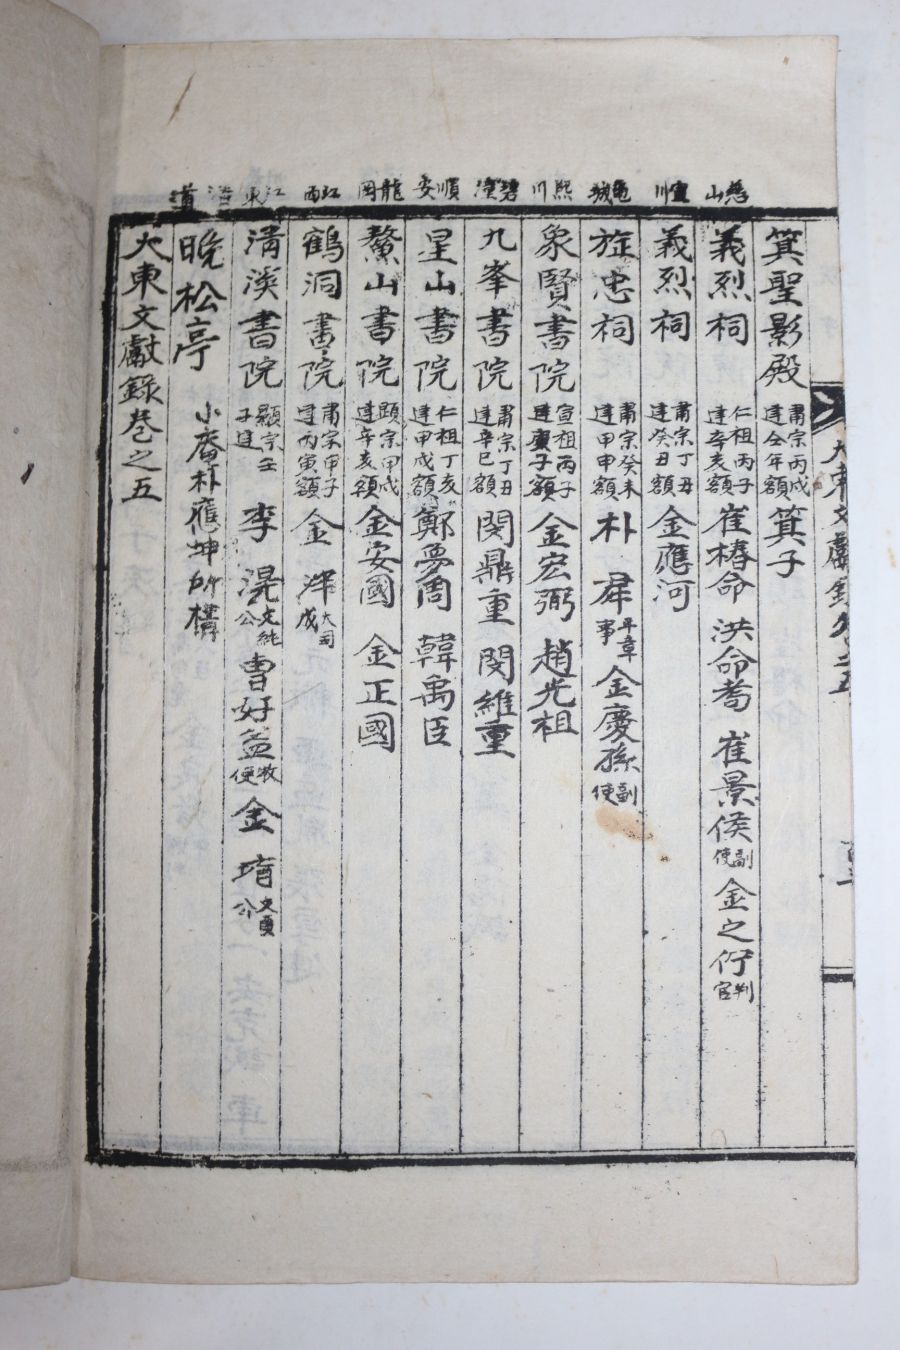 箕聖影殿 肅宗丙戌建仝年額 箕子
慈山
義烈祠 仁祖丙子建辛亥額 崔椿命 洪命耈 崔景侯 副使 金之佇 判官
宣川
義烈祠 肅宗丁丑建癸丑額 金應河
龜城
旌忠祠 肅宗癸未建甲申額 朴犀 平章事 金慶孫 副使
熙川
象賢書院 宣祖丙子建庚子額 金宏弼 趙光祖
碧潼
九峯書院 肅宗丁丑建辛巳額 閔鼎重 閔維重
順安
星山書院 仁祖丁亥建甲戌額 鄭夢周 韓禹臣
龍岡
鰲山書院 顯宗甲戌建辛亥額 金安國 金正國
江西
鶴洞書院 肅宗甲子建丙寅額 金泮 大司成
江東
淸溪書院 顯宗壬子建 李滉 文純公 曺好益 牧使 金堉 文貞公
道
晩松亭 小菴朴應坤所構
大東文獻錄卷之五
大東文獻錄卷之五